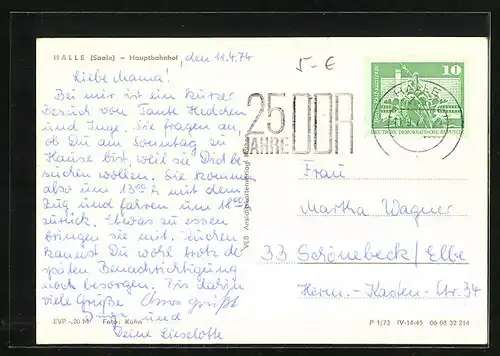 HALLE (Saale) – Hauptbahnhof, den 11.4.74
5-€
Liebe Mama!
Bei mir ist ein kurzer
Besuch von Tante Hedchen
und Inge. Sie fragen an,
ob Du am Sonntag zu
Hause bist, weil sie Dich be
suchen wollen. Sie kommen
also um 13 00 h mit dem
Zug und fahren um 18 00
zurück. Etwas zu essen
bringen sie mit. Kuchen
kannst Du wohl trotz der
späten Benachrichtigung
noch besorgen. Bis dahin
viele Grüße
grüßt
und
Deine Lieselotte
EVP -,20 M Foto: Kühn
VEB Ansichtskartenverlag
25 JAHRE DDR
HALLE
10
DEUTSCHE DEMOKRATISCHE REPUBLIK
Frau
Martha Wagner
33 Schönebeck/Elbe
Herm.-Kasten-Str. 34
P 1/73 IV-14-45 06 08 32 214